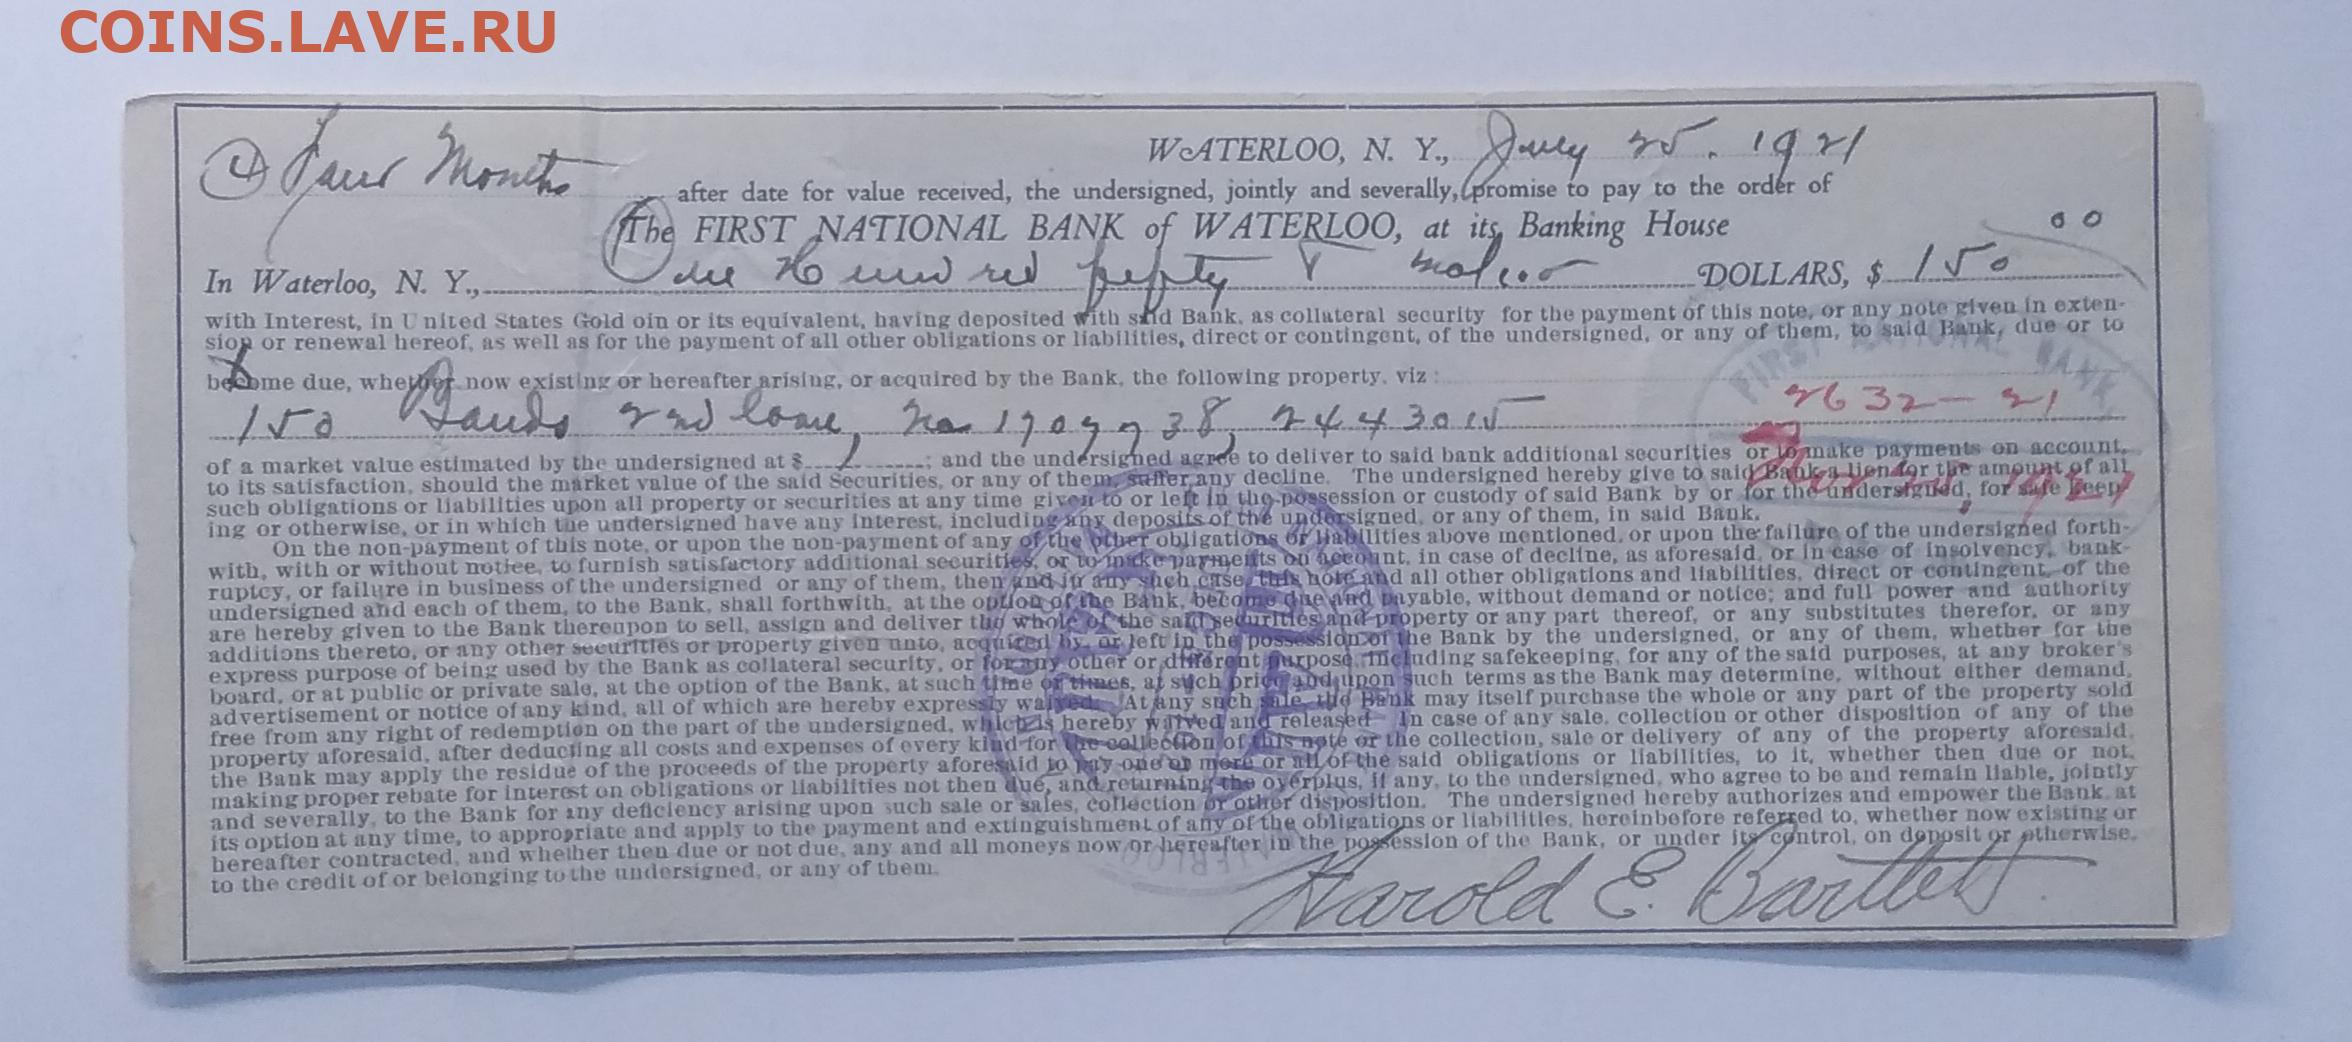 COINS.LAVE.RU
WATERLOO, N. Y., July 25. 1921
④ Four Months after date for value received, the undersigned, jointly and severally, promise to pay to the order of
The FIRST NATIONAL BANK of WATERLOO, at its Banking House
In Waterloo, N. Y., One Hundred fifty DOLLARS, $ 150 00
with Interest, in United States Gold oin or its equivalent, having deposited with said Bank, as collateral security for the payment of this note, or any note given in exten-
sion or renewal hereof, as well as for the payment of all other obligations or liabilities, direct or contingent, of the undersigned, or any of them, to said Bank, due or to
become due, whether now existing or hereafter arising, or acquired by the Bank, the following property, viz :
FIRST NATIONAL BANK
2632 - 21
150 Bonds 2nd loan,
of a market value estimated by the undersigned at $ ; and the undersigned agree to deliver to said bank additional securities or to make payments on account,
to its satisfaction, should the market value of the said Securities, or any of them, suffer any decline. The undersigned hereby give to said Bank a lien for the amount of all
such obligations or liabilities upon all property or securities at any time given to or left in the possession or custody of said Bank by or for the undersigned, for safe keep
ing or otherwise, or in which the undersigned have any interest, including any deposits of the undersigned, or any of them, in said Bank.
On the non-payment of this note, or upon the non-payment of any of the other obligations or liabilities above mentioned, or upon the failure of the undersigned forth-
with, with or without notice, to furnish satisfactory additional securities, or to make payments on account, in case of decline, as aforesaid, or in case of insolvency, bank-
ruptcy, or failure in business of the undersigned or any of them, then and in any such case, this note and all other obligations and liabilities, direct or contingent, of the
undersigned and each of them, to the Bank, shall forthwith, at the option of the Bank, become due and payable, without demand or notice; and full power and authority
are hereby given to the Bank thereupon to sell, assign and deliver the whole of the said securities and property or any part thereof, or any substitutes therefor, or any
additions thereto, or any other securities or property given unto, acquired by, or left in the possession of the Bank by the undersigned, or any of them, whether for the
express purpose of being used by the Bank as collateral security, or for any other or different purpose, including safekeeping, for any of the said purposes, at any broker's
board, or at public or private sale, at the option of the Bank, at such time or times, at such price and upon such terms as the Bank may determine, without either demand,
advertisement or notice of any kind, all of which are hereby expressly waived. At any such sale, the Bank may itself purchase the whole or any part of the property sold
free from any right of redemption on the part of the undersigned, which is hereby waived and released In case of any sale, collection or other disposition of any of the
property aforesaid, after deducting all costs and expenses of every kind for the collection of this note or the collection, sale or delivery of any of the property aforesaid,
the Bank may apply the residue of the proceeds of the property aforesaid to pay one or more or all of the said obligations or liabilities, to it, whether then due or not,
making proper rebate for interest on obligations or liabilities not then due, and returning the overplus, if any, to the undersigned, who agree to be and remain liable, jointly
and severally, to the Bank for any deficiency arising upon such sale or sales, collection or other disposition. The undersigned hereby authorizes and empower the Bank, at
its option at any time, to appropriate and apply to the payment and extinguishment of any of the obligations or liabilities, hereinbefore referred to, whether now existing or
hereafter contracted, and whether then due or not due, any and all moneys now or hereafter in the possession of the Bank, or under its control, on deposit or otherwise,
to the credit of or belonging to the undersigned, or any of them.
Harold E. Bartlett